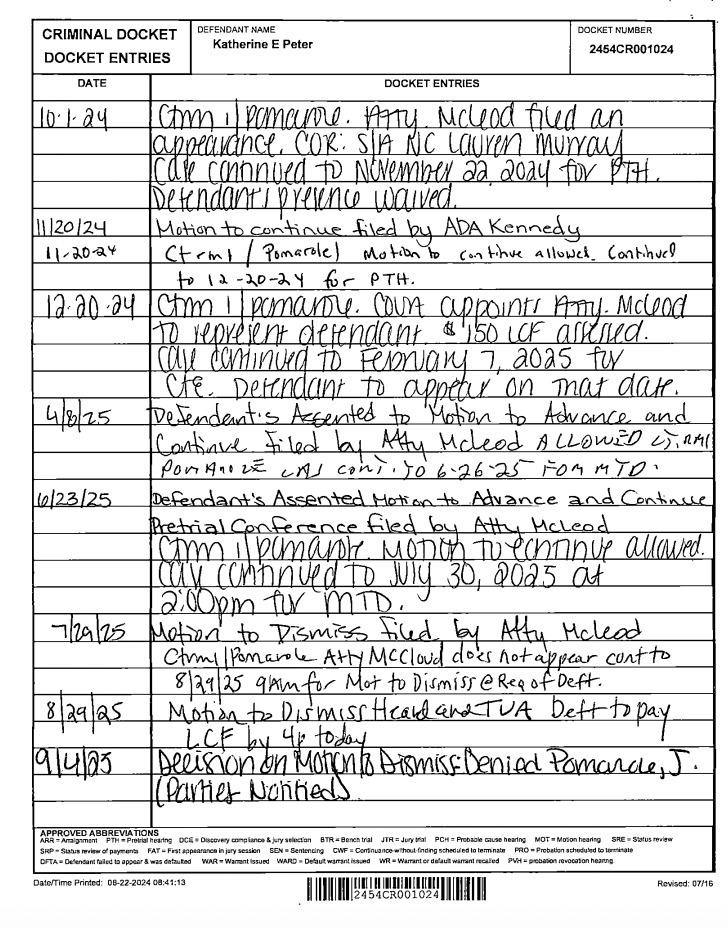 CRIMINAL DOCKET
DOCKET ENTRIES
DEFENDANT NAME
Katherine E Peter
DOCKET NUMBER
2454CR001024
DATE
DOCKET ENTRIES
10·1·24 Ctrm 1 | Pomarole. Atty. McLeod filed an
appearance. COR: S/A NIC Lauren Murray
Case continued to November 22, 2024 for PTH.
Defendant's presence waived.
11/20/24 Motion to continue filed by ADA Kennedy
11-20-24 Ct rm 1 / Pomarole) Motion to continue allowed. Continued
to 12-20-24 for PTH.
12·20·24 Ctrm 1 | Pomarole. Court appoints Atty. McLeod
to represent defendant $150 LCF assessed.
Case continued to February 7, 2025 for
Cte. Defendant to appear on that date.
4/8/25 Defendant's Assented to Motion to Advance and
Continue Filed by Atty McLeod ALLOWED CT.RM1
POMAROLE CONT. TO 6-26-25 FOR MTD.
6/23/25 Defendant's Assented Motion to Advance and Continue
Pretrial Conference filed by Atty McLeod
Ctrm 1 | Pomarole. Motion to continue allowed.
Case continued to July 30, 2025 at
2:00pm for MTD.
7/29/25 Motion to Dismiss filed by Atty McLeod
Ctrm1 | Pomarole Atty McCloud does not appear cont to
8/29/25 9AM for Mot to Dismiss @ Req of Deft.
8/29/25 Motion to Dismiss Heard and TUA Deft to pay
LCF by 4p today
9/4/25 Decision on Motion to Dismiss-Denied Pomarole, J.
(Parties Notified)
APPROVED ABBREVIATIONS
ARR = Arraignment PTH = Pretrial hearing DCE = Discovery compliance & jury selection BTR = Bench trial JTR = Jury trial PCH = Probable cause hearing MOT = Motion hearing SRE = Status review
SRP = Status review of payments FAT = First appearance in jury session SEN = Sentencing CWF = Continuance-without-finding scheduled to terminate PRO = Probation scheduled to terminate
DFTA = Defendant failed to appear & was defaulted WAR = Warrant issued WARD = Default warrant issued WR = Warrant or default warrant recalled PVH = probation revocation hearing.
Date/Time Printed: 08-22-2024 08:41:13
2454CR001024
Revised: 07/16